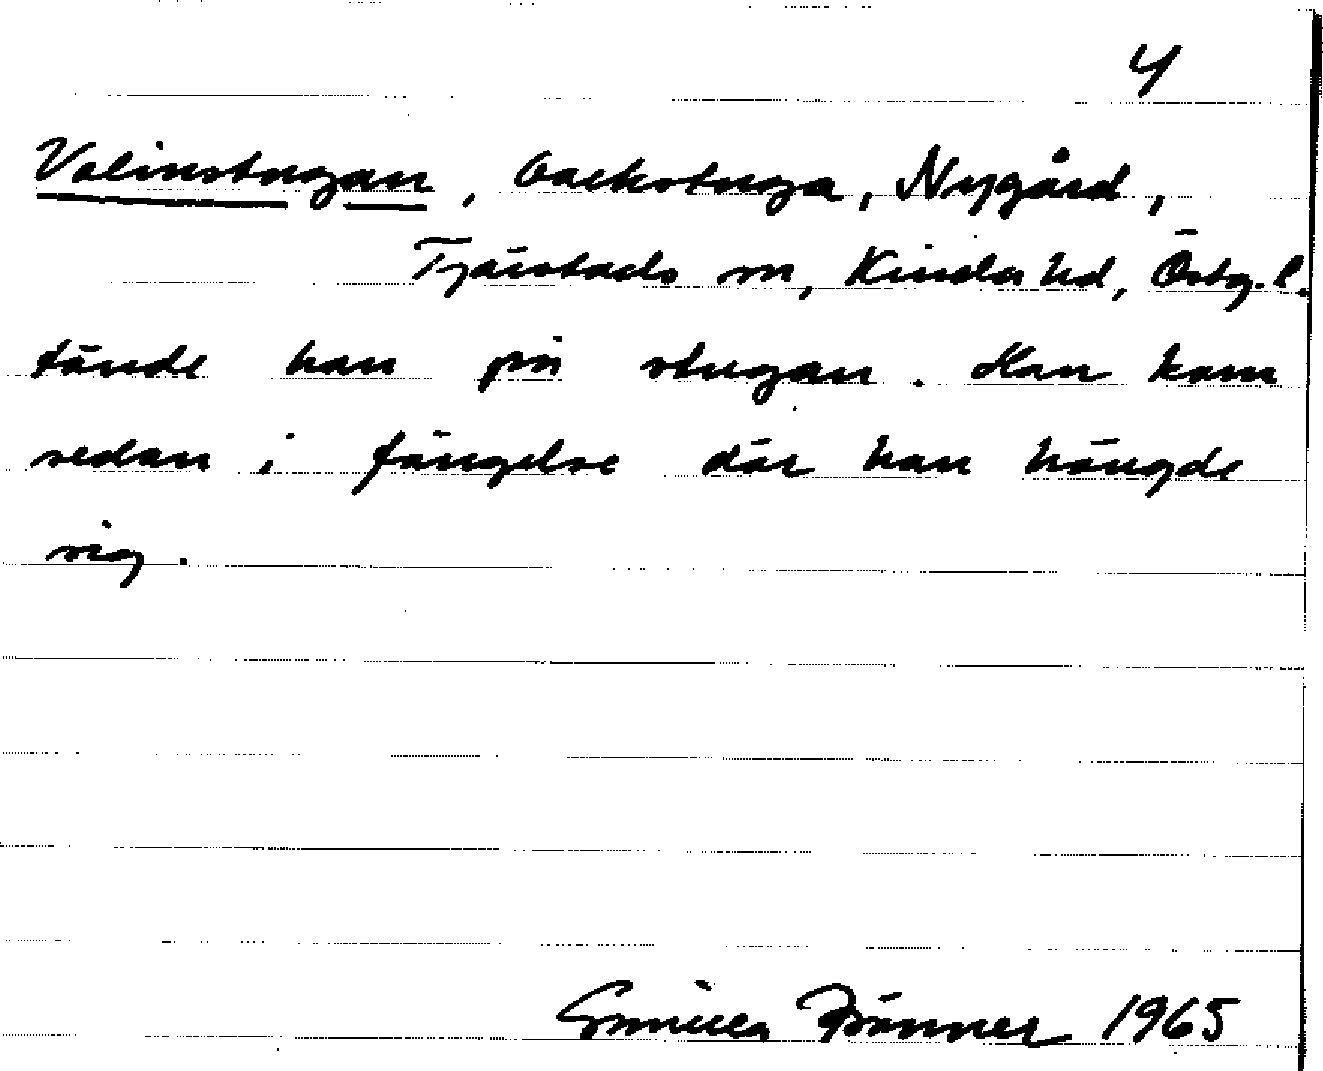 4
Valinstugan, backstuga, Nygård,
Tjärstads sn, Kinda hd, Östg.l.
tände han på stugan. Han kom
sedan i fängelse där han hängde
sig.
Gunilla Brönner 1965